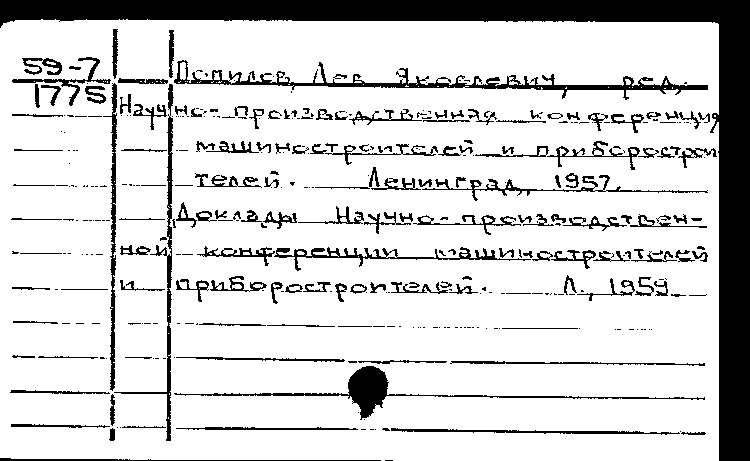 59-7 Попилов, Лев Яковлевич, ред.
1775 Научно-производственная конференция
машиностроителей и приборострои-
телей. Ленинград, 1957.
Доклады Научно-производствен-
ной конференции машиностроителей
и приборостроителей. Л., 1959